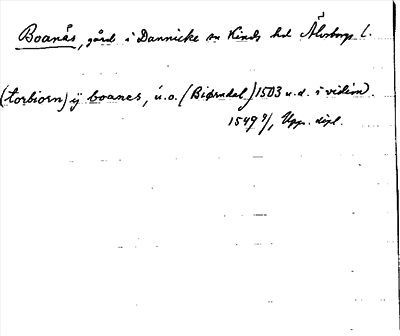 Boanäs, gård i Dannicke sn Kinds hd Älvsborgs l.
(torbiorn) ij boanes, u.o. (Biørndal) 1503 u.d. i vidim.
1549 9/1, Upps. dipl.